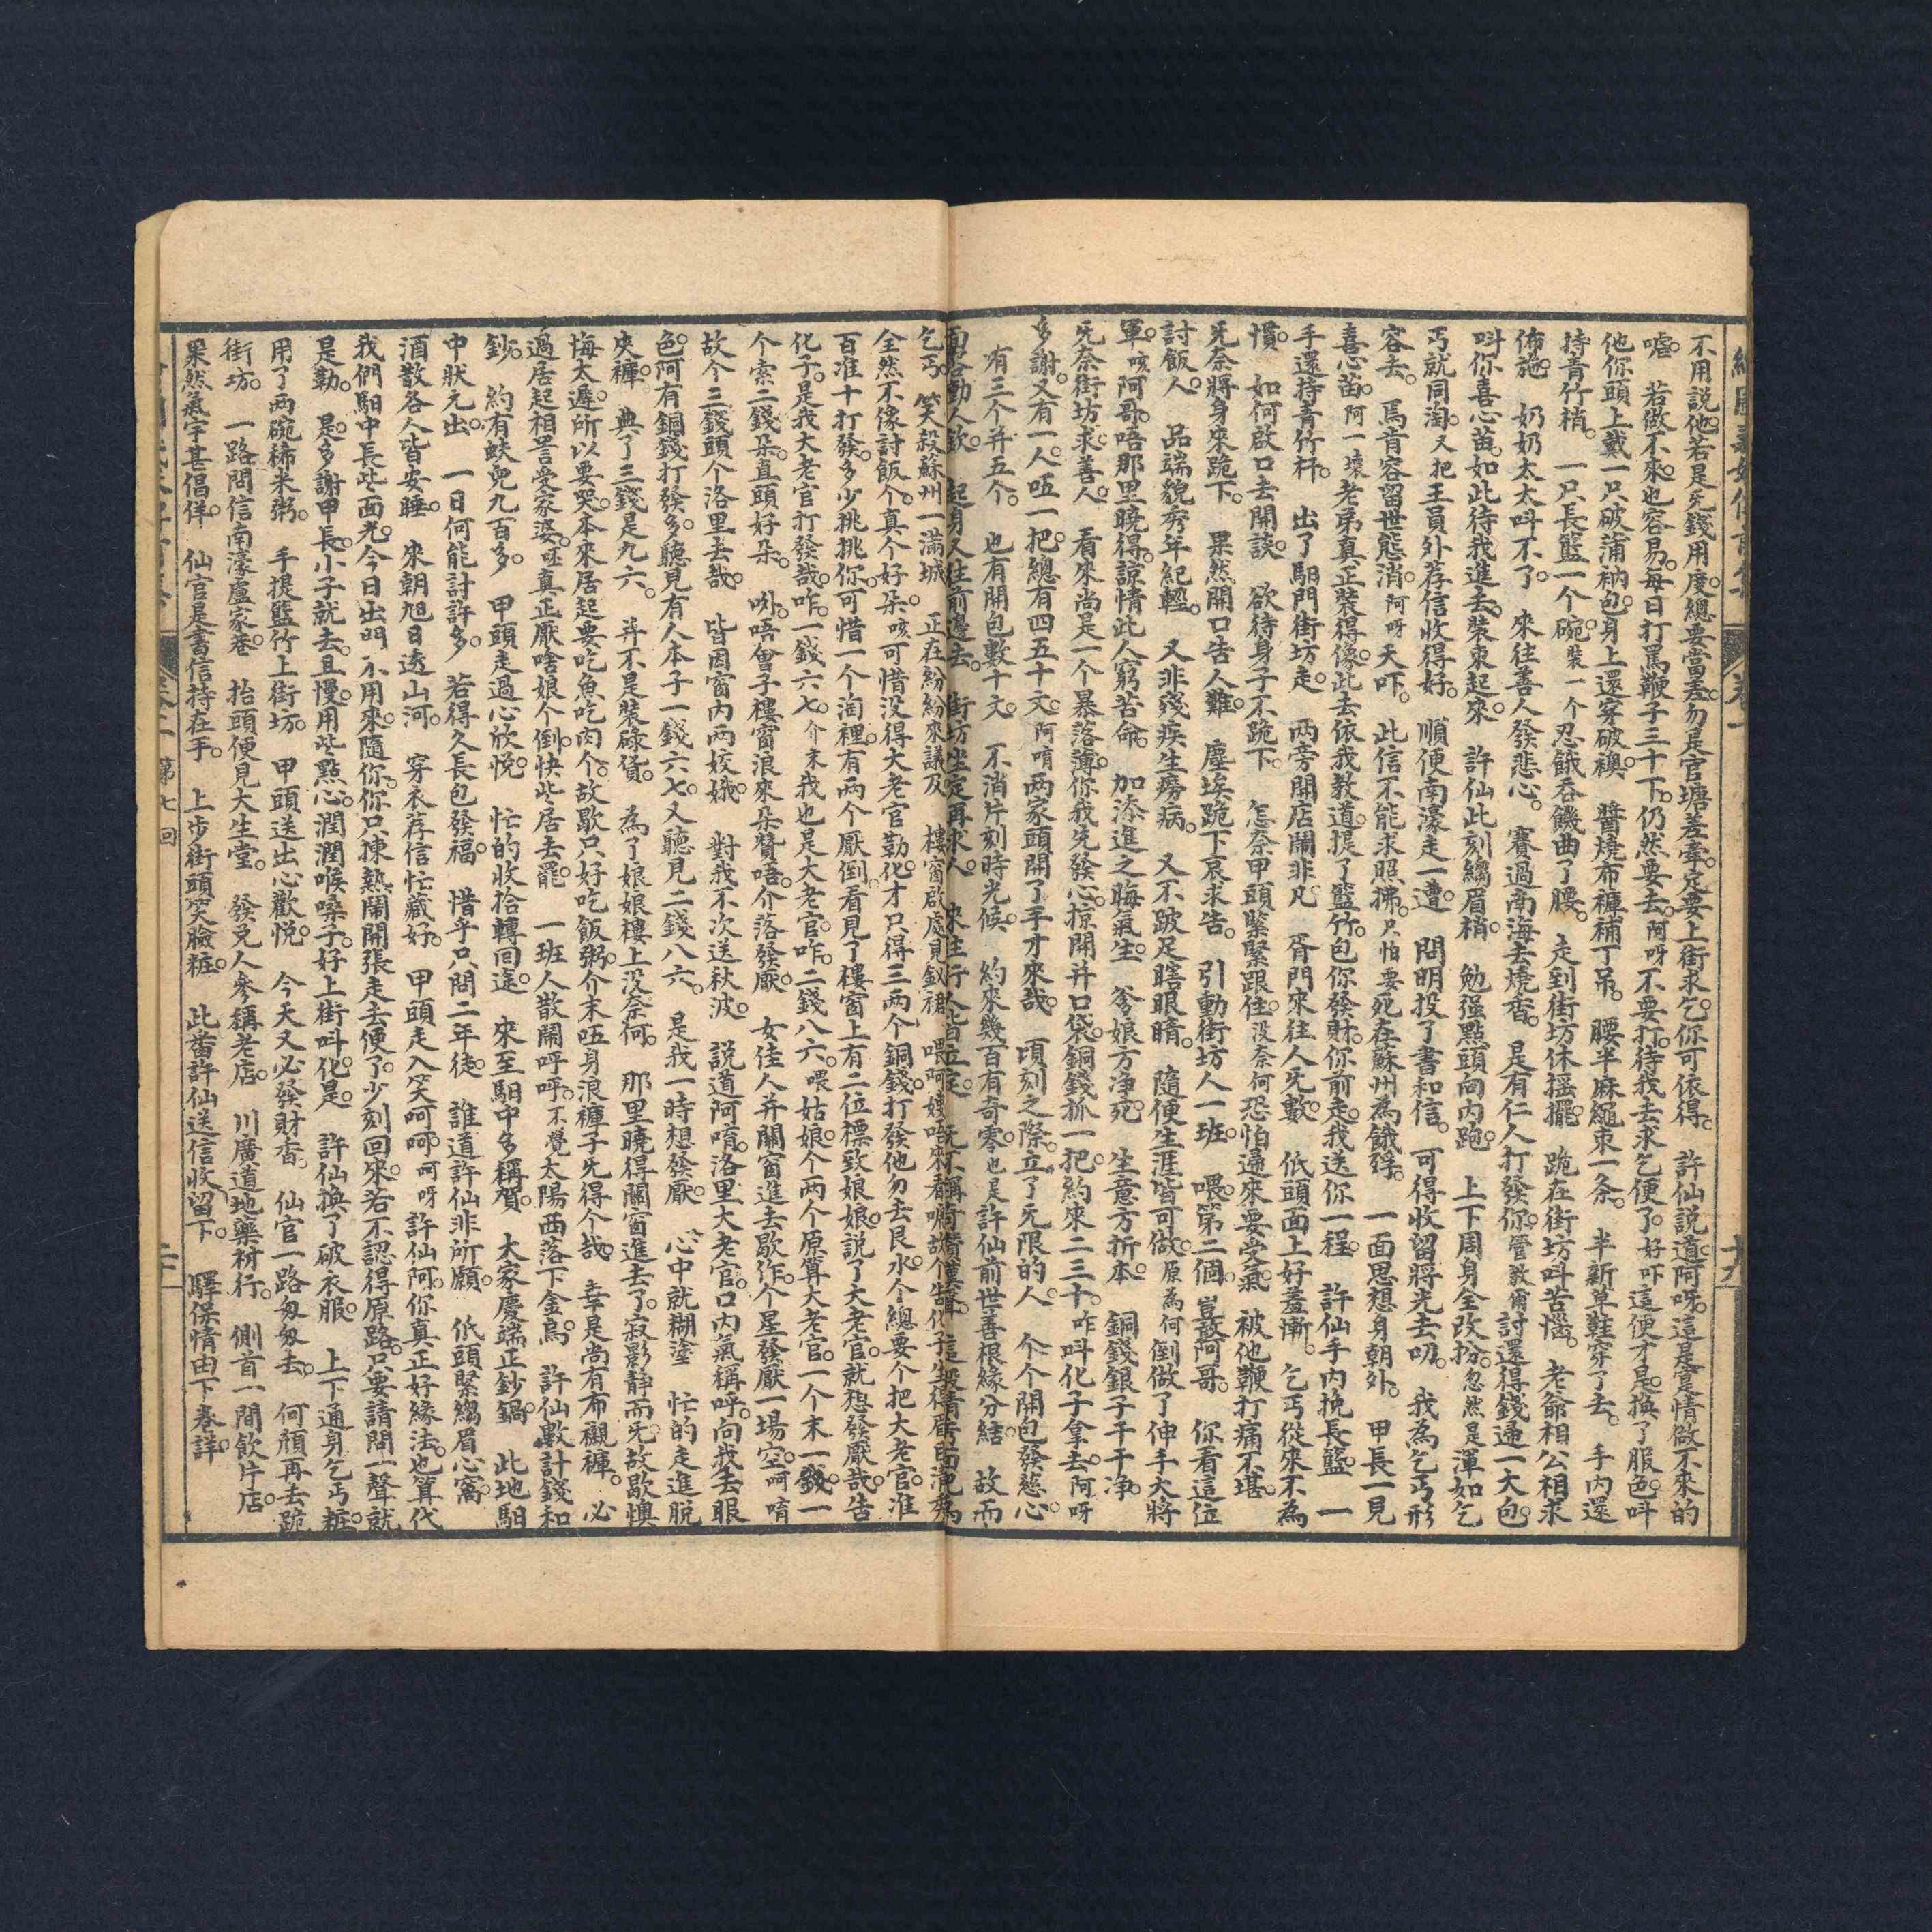 不用說。他若是旡錢用度。總要當差。勿是官塘差牽。定要上街求乞。你可依得。許仙說道。阿呀。這是寔情做不來的
嘘。若做不來。也容易。每日打罵鞭子三十下。仍然要去。阿呀不要打。待我去求乞便了。好吓這便才是。換了服色。呌
他你頭上戴一只破蒲衲包。身上還穿破襖。醬燒布褲補丁吊。腰半麻繩束一条。半新草鞋穿了去。手內還
持青竹梢。一只長籃一个碗。裝一个忍餓吞饑曲了腰。走到街坊休摇擺。跪在街坊呌苦惱。老爺相公相求
佈施。奶奶太太呌不了。來往善人發悲心。賽過南海去燒香。是有仁人打發你。管敎爾討還得錢逓一大包。
呌你喜心苗。如此待我進去。裝束起來。許仙此刻縐眉梢。勉强點頭向內跑。上下周身全改扮。忽然是渾如乞
丐就同淘。又把王員外荐信收得好。順便南濠走一遭。問明投了書和信。可得收留將光去叨。我為乞丐形
容去。焉肯容留世態消。阿呀天吓。此信不能求照拂。只怕要死在蘇州為餓殍。一面思想身朝外。甲長一見
喜心苗。阿一壞老弟真正裝得像。此去依我教道。提了籃竹。包你發財。你前走。我送你一程。許仙手內挽長籃。一
手還持青竹杯。出了馹門街坊走。両旁開店鬧非凡。胥門來往人旡數。低頭面上好羞慚。乞丐從來不為
慣。如何啟口去開談。欲待身子不跪下。怎奈甲頭緊緊跟住。没奈何恐怕逓來要受氣。被他鞭打痛不堪。
旡奈將身來跪下。果然開口告人難。塵埃跪下哀求告。引動街坊人一班。喂。第二個豈敢阿哥。你看這位
討飯人。品端貌秀年紀輕。又非殘疾生癆病。又不跛足瞎眼睛。隨便生涯皆可做。原為何倒做了伸手大將
軍。咳阿哥。唔那里曉得。諒情此人窮苦命。加添進之晦氣生。爹娘方净死。生意方折本。銅錢銀子干干净。
旡奈街坊求善人。看來尚是一个暴落薄。你我先發心。掠開并口袋。銅錢抓一把。約來二三十。咋呌化子拿去。阿呀
多謝。又有一人。唔一把。總有四五十文。阿唷両家頭開了手才來哉。頃刻之際。立了旡限的人。个个開包發慈心。
有三个并五个。也有開包數十文。不消片刻時光候。約來幾百有奇零。也是許仙前世善根緣分結。故而
乞丐。笑殺蘇州一滿城。正在紛紛來議及。樓窗啟處見釵裙。
全然不像討飯个。真个好朵。咳可惜没得大老官勒化。才只得三両个銅錢。打發他勿去艮水。今總要个把大老官。准
百准十打發。多少挑挑你。可惜一个淘裡。有両个厭倒看見了樓窗上有二位標致娘娘。說了大老官。就想發厭哉。告
化子。是我大老官打發哉。咋。一錢六七。介末我也是大老官。咋。二錢八六。喂姑娘。个両个原算大老官。一个末一錢。一
个索二錢朵。直頭好朵。吻。唔曾子樓窗浪來朵贊唔。介落發厭。女佳人并關窗進去歇作。个星發厭一場空。呵唷
故个三錢頭个洛里去哉。皆因窗內両姣娥。對我不次送秋波。說道阿唷。洛里大老官。口內氣稱呼。向我丢眼
色。阿有銅錢打發。多聽見有人本子一錢六七。又聽見二錢八六。是我一時想發厭。心中就糊塗。忙的走進脱
夾褲。典了三錢是九六。并不是裝碌貨。為了娘娘樓上没奈何。那里曉得關窗進去了。寂影靜而旡。故歇懊
悔太遲。所以要哭。本來居起要吃魚吃肉个。故歇只好吃飯粥。介末唔身浪褲子旡得个哉。幸是尚有布襯褲。必
過居起相詈受家婆。呸真正厭啥娘个倒。快些居去罷。一班人散鬧呼呼。不覺太陽西落下金烏。許仙數計錢和
鈔。約有蚨兒九百多。甲頭走過心欣悅。忙的收拾轉回逵。來至馹中多稱賀。大家慶端正鈔鍋。此地馹
中狀元出。一日何能討許多。若得久長包發福。惜乎只問二年徒。誰道許仙非所願。低頭緊縐眉心窩。
酒散各人皆安睡。來朝旭日透山河。穿衣荐信忙藏好。甲頭走入笑呵呵。呵呀許仙阿。你真正好緣法。也算代
我們馹中長些面光。今日出門。不用來隨你。你只揀熱鬧開張走去便了。少刻回來。若不認得原路。只要請問一聲就
是勒。是。多謝甲長。小子就去。且慢。用些點心。潤潤喉嗓子。好上街呌化。是。許仙換了破衣服。上下通身乞丐糚。
用了両碗稀米粥。手提籃竹上街坊。甲頭送出心歡悅。今天又必發財香。仙官一路匆匆去。何顏再去跪
街坊。一路問信南濠盧家巷。抬頭便見大生堂。發兌人參稱老店。川廣道地藥材行。側首一間飲片店。
果然氣宇甚倡佯。仙官是書信持在手。上步街頭笑臉糚。此番許仙送信收留下。驛保情由下卷詳
第七回